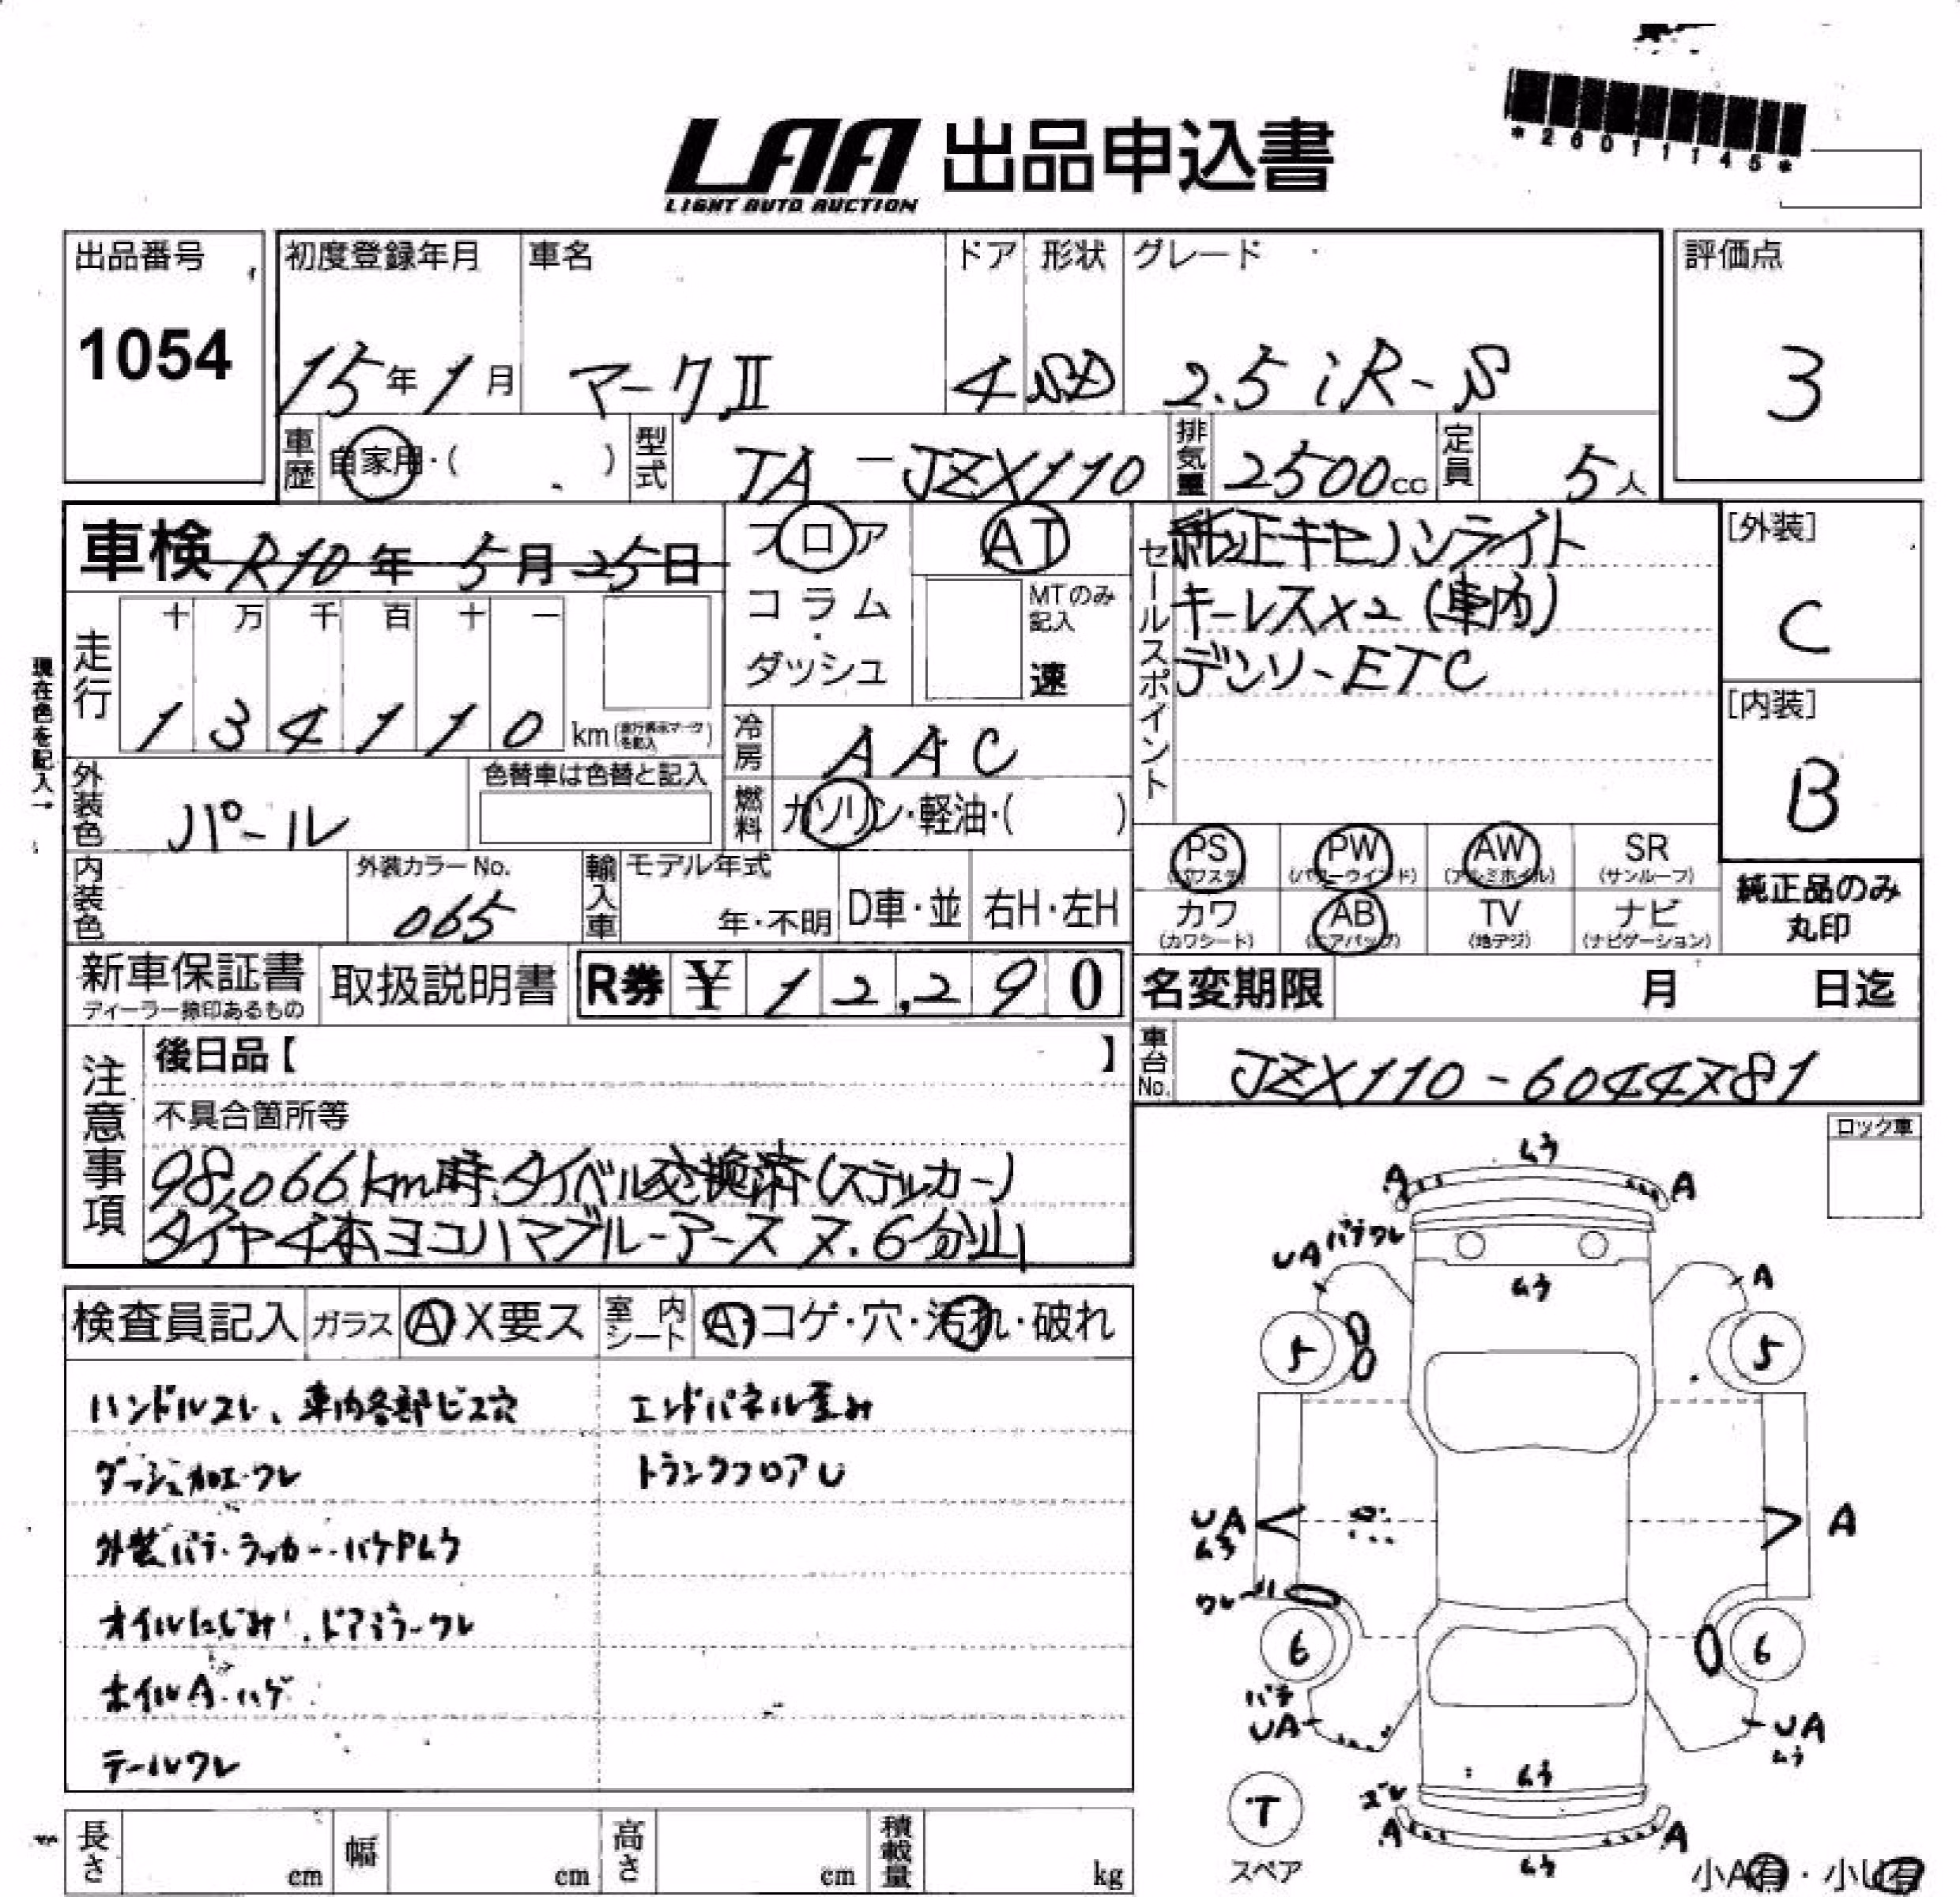 *26011145*
LAA 出品申込書
LIGHT AUTO AUCTION
出品番号
1054
初度登録年月
15年1月
車名
マークⅡ
ドア
4
形状
SD
グレード
2.5 iR-S
評価点
3
車歴
自家用・( )
型式
TA-JZX110
排気量
2500cc
定員
5人
車検 R10年 5月 25日
フロア
コラム
・
ダッシュ
AT
MTのみ
記入
速
セールスポイント
純正キセノンライト
キーレス×2 (車内)
デンソーETC
[外装]
C
[内装]
B
現在色を記入→
走行
十 万 千 百 十 一
1 3 4 1 1 0 km
(走行表示マークを記入)
冷房
AAC
燃料
ガソリン・軽油・( )
外装色
パール
色替車は色替と記入
内装色
外装カラーNo.
065
輸入車
モデル年式
年・不明
D車・並
右H・左H
PS
(パワステ)
PW
(パワーウインド)
AW
(アルミホイル)
SR
(サンルーフ)
カワ
(カワシート)
AB
(エアバッグ)
TV
(地デジ)
ナビ
(ナビゲーション)
純正品のみ
丸印
新車保証書
ディーラー捺印あるもの
取扱説明書
R券 ¥ 12,290
名変期限
月 日迄
車台No.
JZX110-6044781
注意事項
後日品【 】
不具合箇所等
98,066km時.タイベル交換済(ステッカー)
タイヤ4本ヨコハマブルーアース 7.6分山
ロック車
検査員記入
ガラス
A X要ス
室内シート
A・コゲ・穴・汚れ・破れ
ハンドルスレ、車内各部ビス穴
エンドパネル歪み
ダッシュ加工・ワレ
トランクフロアU
外装パテ・ラッカー・ハケPムラ
オイルにじみ、ドアミラーワレ
ホイルA・ハゲ
テールワレ
ムラ
A
A
UA パテワレ
ムラ
A
5
5
UA
ムラ
A
ワレ
6
6
パテ
UA
UA
ムラ
ムラ
ズレ
A
A
ムラ
T
スペア
小A有・小U有
長さ
cm
幅
cm
高さ
cm
積載量
kg